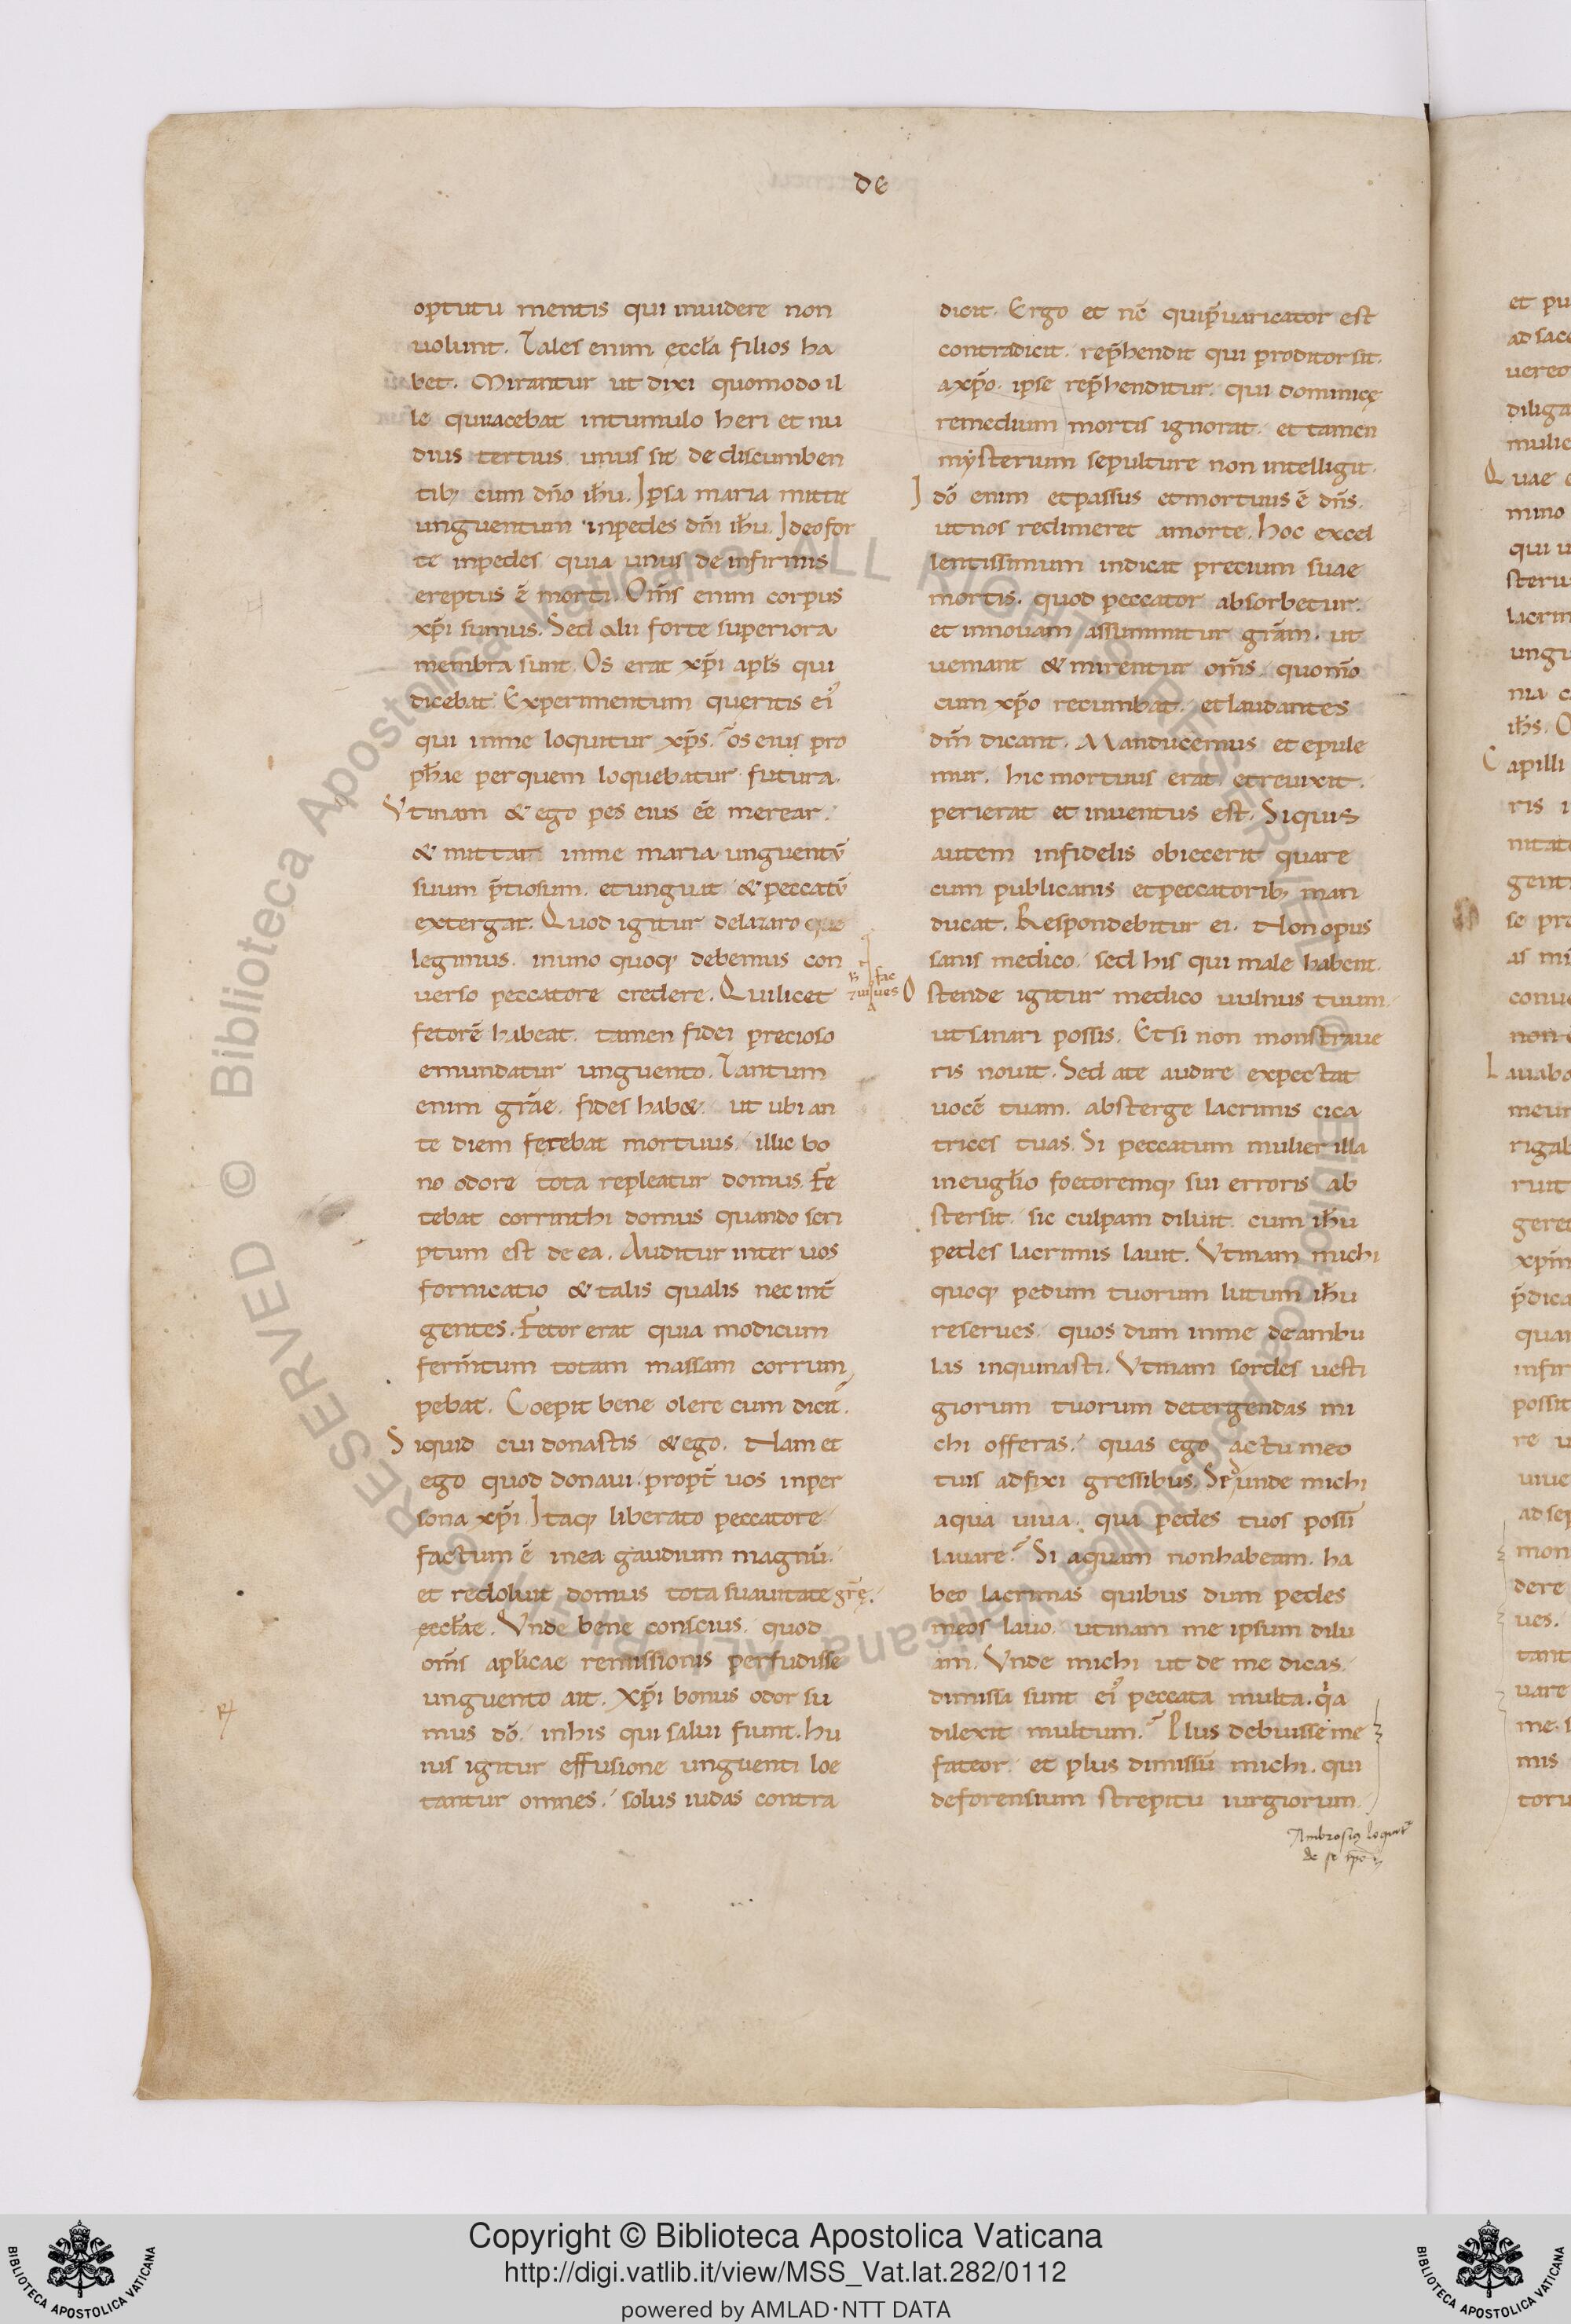 de
optutu mentis qui inuidere non
uolunt. Tales enim ęccła filios ha
bet. Mirantur ut dixi quomodo il
le qui iacebat intumulo heri et nu
dius tertius unus sit de discumben
tib; cum dño ihu. Ipsa maria mittit
unguentum inpedes dñi ihu. Ideo for
te inpedes quia unus de infirmis
ereptus ē morti. Om̄s enim corpus
xp̄i sumus. Sed alii forte superiora
membra sunt. Os erat xp̄i apłs qui
dicebat. Experimentum queritis ei᾽
qui inme loquitur xp̄s. os eius pro
phae per quem loquebatur futura.
Vtinam & ego pes eius ēē merear.
& mittat inme maria unguentū
suum p̄tiosum. et unguat & peccatū
extergat. Quod igitur delazaro quo
legimus. inuno quoq; debemus con
uerso peccatore credere. Qui licet
fetorē habeat. tamen fidei precioso
emundatur unguento. Tantum
enim grāe. fides hab&. ut ubi an
te diem fetebat mortuus. illic bo
no odore tota repleatur domus. Fe
tebat corrinthi domus quando scri
ptum est de ea. Auditur inter uos
fornicatio & talis qualis nec int̄
gentes. Fetor erat quia modicum
ferm̄tum totam massam corrum
pebat. Coepit bene olere cum dicit.
Siquid cui donastis & ego. Nam et
ego quod donaui. propt̄ uos inper
sona xp̄i. Itaq; liberato peccatore
factum ē inea gaudium magnū.
et redoluit domus tota suauitate grę̄.
ęccłae. Vnde bene conscius. quod
om̄s aplicae remissionis perfudisse
unguento ait. Xp̄i bonus odor su
mus dō. inhis qui salui fiunt. hu
ius igitur effusione unguenti loe
tantur omnes. solus iudas contra
dicit. Ergo et nc̄ qui p̄uaricator est
contradicit. rep̄hendit qui proditor sit.
axp̄o. ipse rep̄henditur. qui dominicę
remedium mortis ignorat. et tamen
mysterium sepulture non intelligit.
Idō enim et passus et mortuus ē dn̄s.
ut nos redimeret amorte. hoc excel
lentissimum indicat precium suae
mortis. quod peccator absorbetur.
et innouam assummitur grām. ut
ueniant & mirentur om̄s quom̄o
cum xp̄o recumbat. et laudantes
dm̄ dicant. Manducemus et epule
mur. hic mortuus erat et reuixit.
perierat et inuentus est. Siquis
autem infidelis obiecerit quare
cum publicanis et peccatorib; man
ducat. Respondebitur ei. Non opus
sanis medico. sed his qui male habent.
Ostende igitur medico uulnus tuum.
ut sanari possis. Et si non monstraue
ris nouit. Sed ate audire expectat
uocē tuam. absterge lacrimis cica
trices tuas. Si peccatum mulier illa
ineuglio foetoremq; sui erroris ab
stersit. sic culpam diluit. cum ihu
pedes lacrimis lauit. Vtinam michi
quoq; pedum tuorum lutum ihu
reserues. quos dum inme deambu
las inquinasti. Vtinam sordes uesti
giorum tuorum detergendas mi
chi offeras. quas ego actu meo
tuis adfixi gressibus. unde michi
aqua uiua. qua pedes tuos possī
lauare? Si aquam non habeam. ha
beo lacrimas quibus dum pedes
meos lauo. utinam me ipsum dilu
am. Vnde michi ut de me dicas.
dimissa sunt ei᾽ peccata multa. qa
dilexit multum. Plus debuisse me
fateor. et plus dimissū michi. qui
deforensium strepitu iurgiorum
Ambrosi9 loquit̄
de se ipo
Copyright © Biblioteca Apostolica Vaticana
http://digi.vatlib.it/view/MSS_Vat.lat.282/0112
powered by AMLAD·NTT DATA
BIBLIOTECA APOSTOLICA VATICANA
BIBLIOTECA APOSTOLICA VATICANA